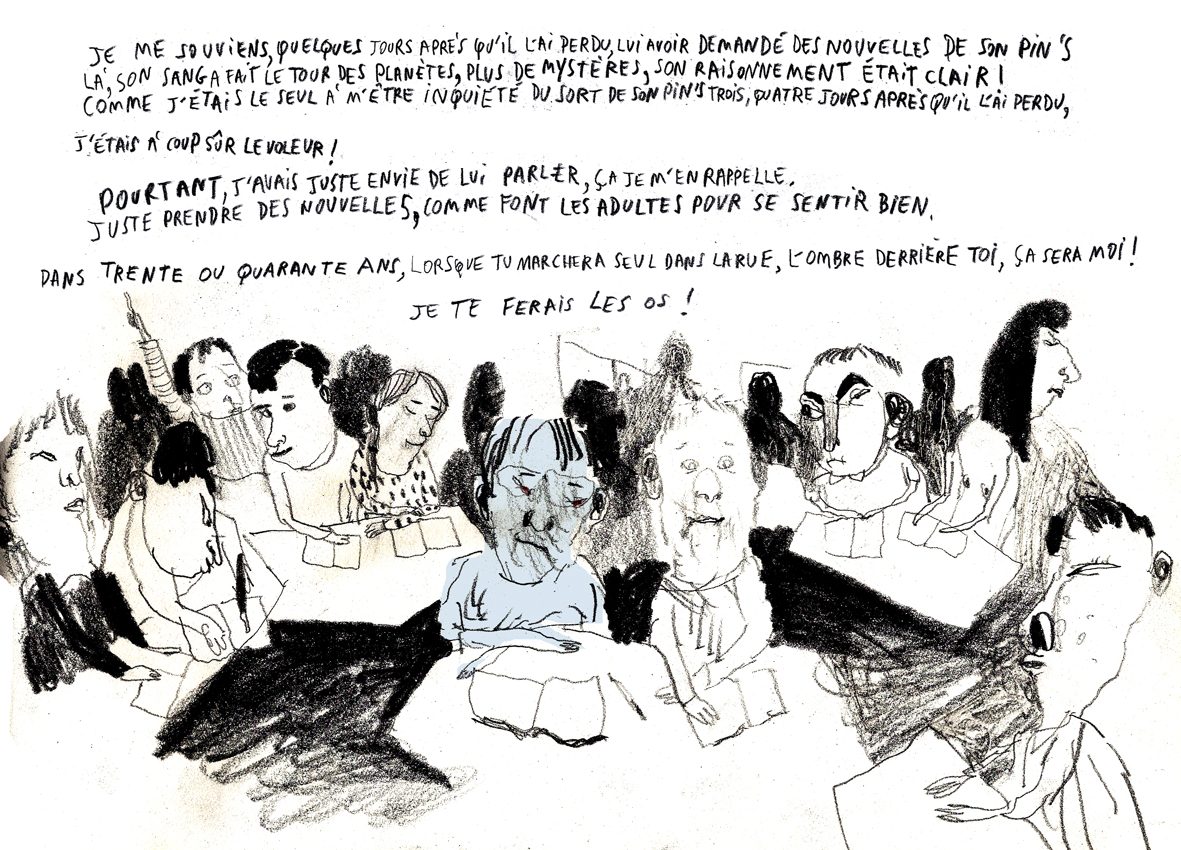 JE ME SOUVIENS, QUELQUES JOURS APRÈS QU'IL L'AI PERDU, LUI AVOIR DEMANDÉ DES NOUVELLES DE SON PIN'S
LÀ, SON SANG A FAIT LE TOUR DES PLANÈTES, PLUS DE MYSTÈRES, SON RAISONNEMENT ÉTAIT CLAIR !
COMME J'ÉTAIS LE SEUL À M'ÊTRE INQUIÉTÉ DU SORT DE SON PIN'S TROIS, QUATRE JOURS APRÈS QU'IL L'AI PERDU,
J'ÉTAIS À COUP SÛR LE VOLEUR !
POURTANT, J'AVAIS JUSTE ENVIE DE LUI PARLER, ÇA JE M'EN RAPPELLE.
JUSTE PRENDRE DES NOUVELLES, COMME FONT LES ADULTES POUR SE SENTIR BIEN.
DANS TRENTE OU QUARANTE ANS, LORSQUE TU MARCHERA SEUL DANS LA RUE, L'OMBRE DERRIÈRE TOI, ÇA SERA MOI !
JE TE FERAIS LES OS !